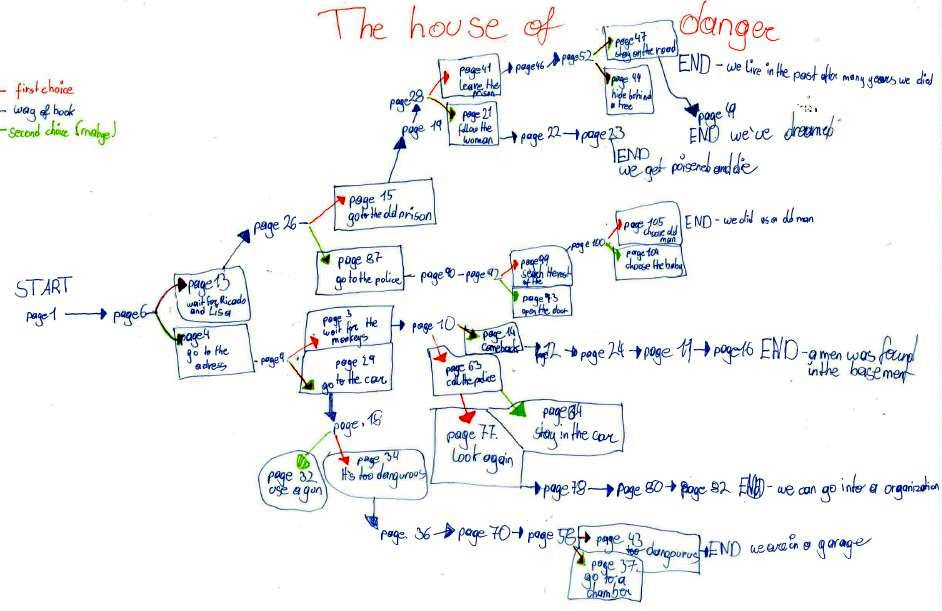 The house of danger
- first choice
- way of book
- second choice (maybe)
START
page 1
page 6
page 13
wait for Ricado
and Lisa
page 4
go to the
adress
page 26
page 15
go to the old prison
page 87
go to the police
page 19
page 28
page 41
leave the
prison
page 21
follow the
woman
page 46
page 52
page 47
stay on the road
page 44
hide behind
a tree
END - we live in the past after many years we died
page 49
END we've dreamed
page 22
page 23
END
we get poisened and die
page 90
page 92
page 99
search the rest
of the
page 93
open the door
page 100
page 105
choose old
man
page 104
choose the baby
END - we did as a old man
page 9
page 3
wait for the
monkeys
page 29
go to the car
page 10
page 14
comeback
page 12
page 24
page 11
page 16
END - a men was found
in the basement
page 63
call the police
page 77.
Look again
page 64
stay in the car
page 18
page 32
use a gun
page 34
It's too dangurous
page 78
page 80
page 82
END - we can go into a organization
page 36
page 70
page 58
page 43
too dangourus
page 37.
go to a
chamber
END we are in a garage